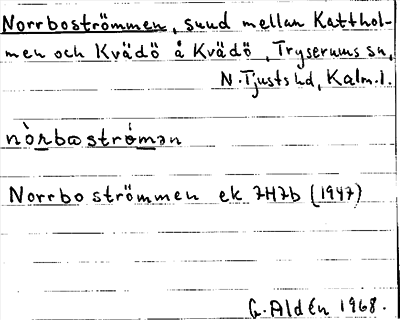 Norrboströmmen, sund mellan Katthol-
men och Kvädö å Kvädö, Tryserums sn,
N. Tjusts hd, Kalm.l.
nòrbωströ́mən
Norrboströmmen ek 7H7b (1947)
G. Aldén 1968.